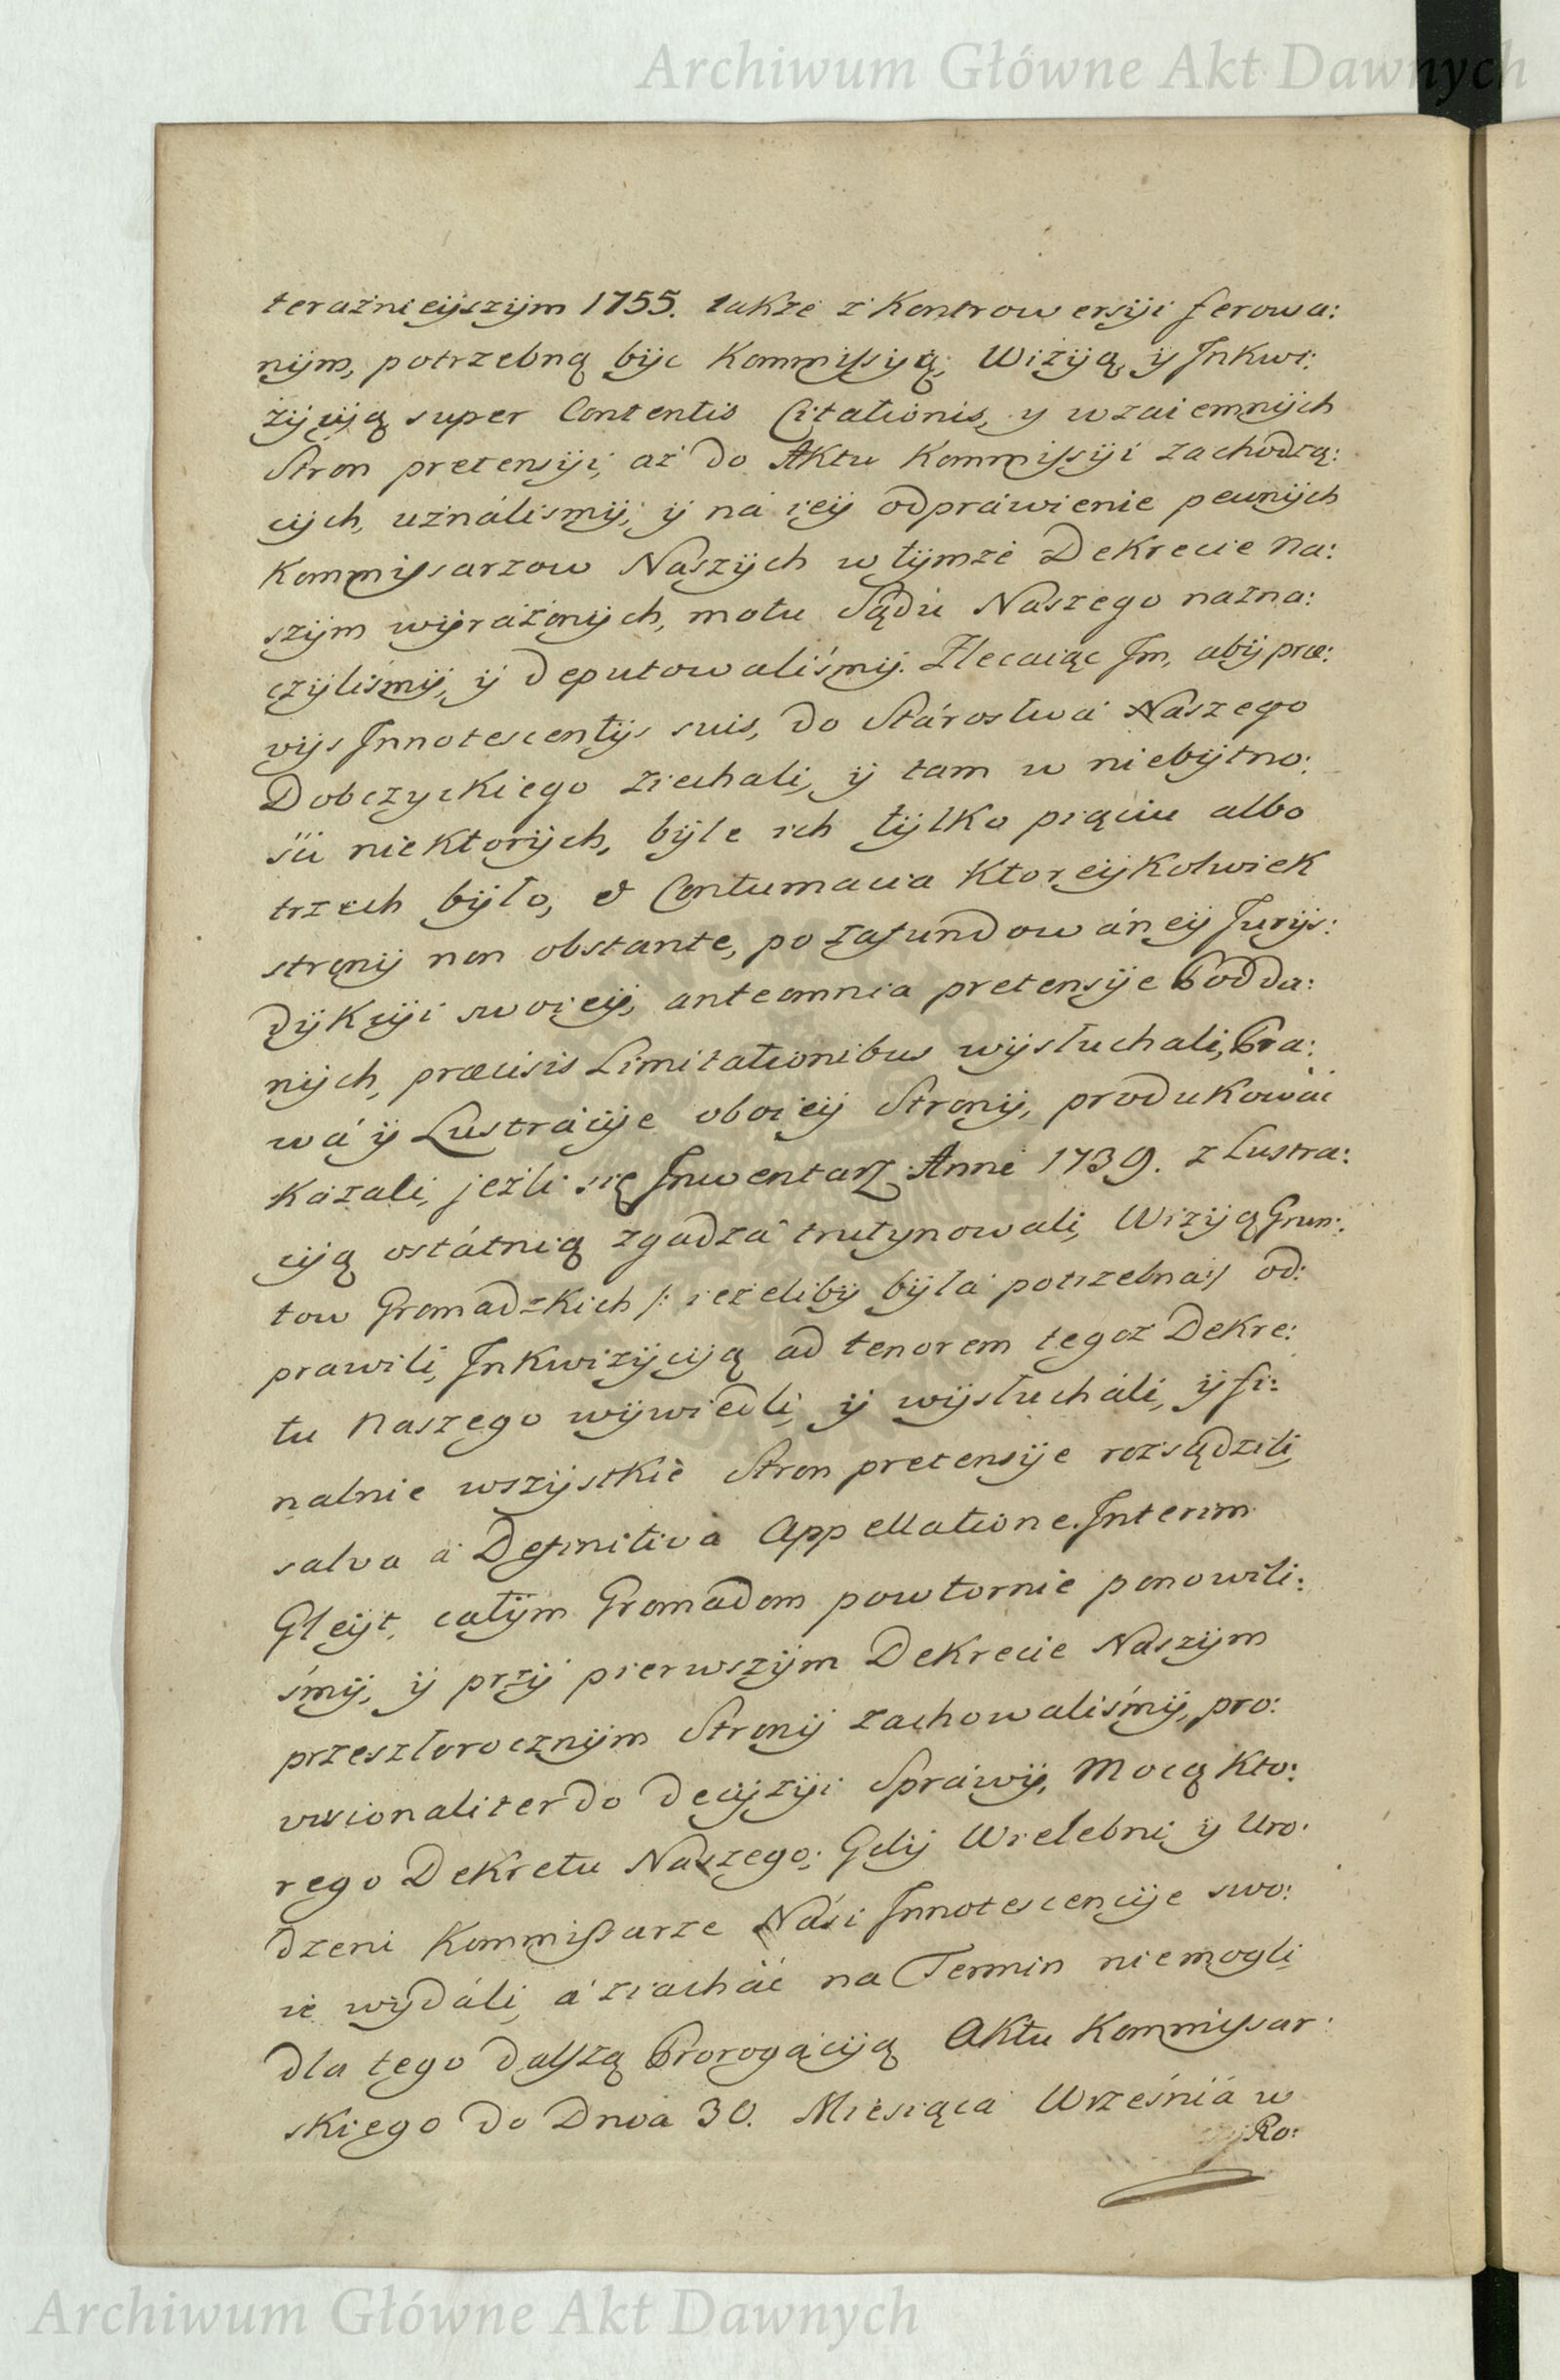 Archiwum Główne Akt Dawnych
teraźnieyszym 1755. także z Kontrowersyi ferowa:
nym, potrzebną byc Kommissyią, Wizyą, y Inkwi:
zycyią super Contentis Citationis, y wzaiemnych
Stron pretensyi, aż do Aktu Kommissyi zachodzą:
cych, uználismy, y ná iey odpráwienie pewnych
Kommissarzow Naszych w tymże Dekrecie Na:
szym wyráżonych, motu Sądu Naszego nazna:
czyliśmy, y deputowaliśmy. Zlecaiąc Im, aby præ:
vijs Innotescentijs suis, do Stárostwá Naszego
Dobczyckiego ziechali, y tam w niebytno:
ści niektorych, byle ich tylko pięciu albo
trzech było, et Contumacia Ktoreykolwiek
strony non obstante, po zafundowáney Jurys:
dykcyi swoiey, anteomnia pretensye Podda:
nych, præcisis Limitationibus wysłuchali, Pra:
wá y Lustrácye oboiey Strony, produkowáć
kázali, jeżli się Inwentarz Anni 1739. z Lustra:
cyą ostátnią zgadza trutynowali, Wizyą Grun:
tow Gromadzkich /: ieżeliby byłá potrzebna:/ od:
prawili, Inkwizycyą ad tenorem tegoż Dekre:
tu Naszego wywiedli, y wysłucháli, y fi:
nalnie wszystkie Stron pretensye rozsądzili
salva á Definitiva Appellatione. Interim
Gleyt, całym Gromadom powtornie ponowili:
śmy, y przy pierwszym Dekrecie Naszym
przeszłorocznym Strony zachowaliśmy, pro:
visionaliter do decyzyi Spráwy, Mocą Kto:
rego Dekretu Naszego; Gdy Wielebni y Uro:
dzeni Kommissarze Náśi Innotescencye swo:
ie wydáli, á ziacháć na Termin niemogli
dla tego dalszą Prorogácyą Aktu Kommissar:
skiego do Dnia 30. Miesiąca Wrześniá w
Ro:
Archiwum Główne Akt Dawnych